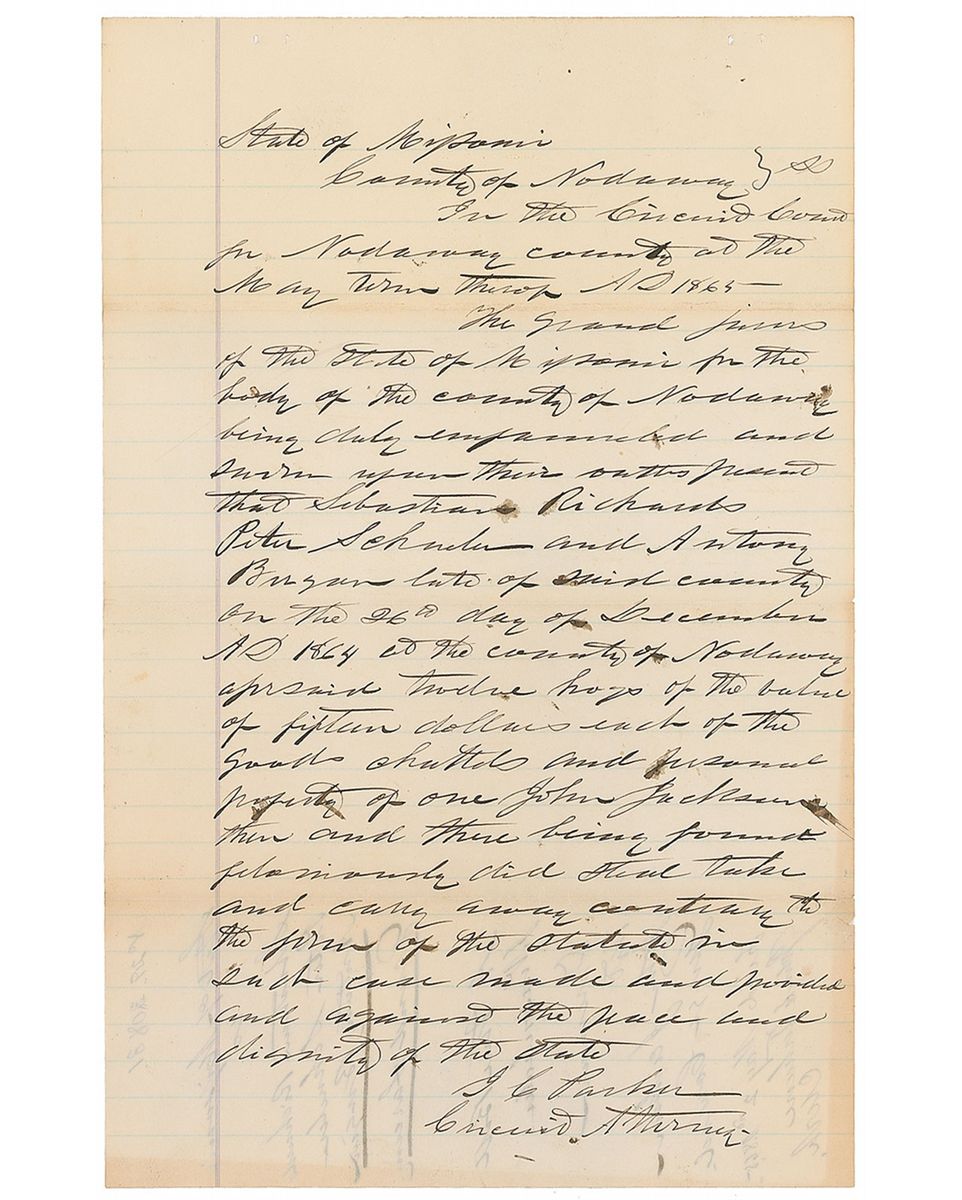 State of Missouri
County of Nodaway } ss
In the Circuit Court
for Nodaway county at the
May term thereof AD 1865 —
The Grand jurors
of the State of Missouri for the
body of the county of Nodaway
being duly empanneled and
sworn upon their oaths present
that Sebastian Richards
Peter Schuler and Antony
Bugan late of said county
on the 26th day of December
AD 1864 at the county of Nodaway
aforsaid twelve hogs of the value
of fifteen dollars each of the
goods chattels and personal
property of one John Jackson
then and there being found
feloniously did steal take
and carry away contrary to
the form of the statute in
such case made and provided
and against the peace and
dignity of the state
J C Parker
Circuit Attorney